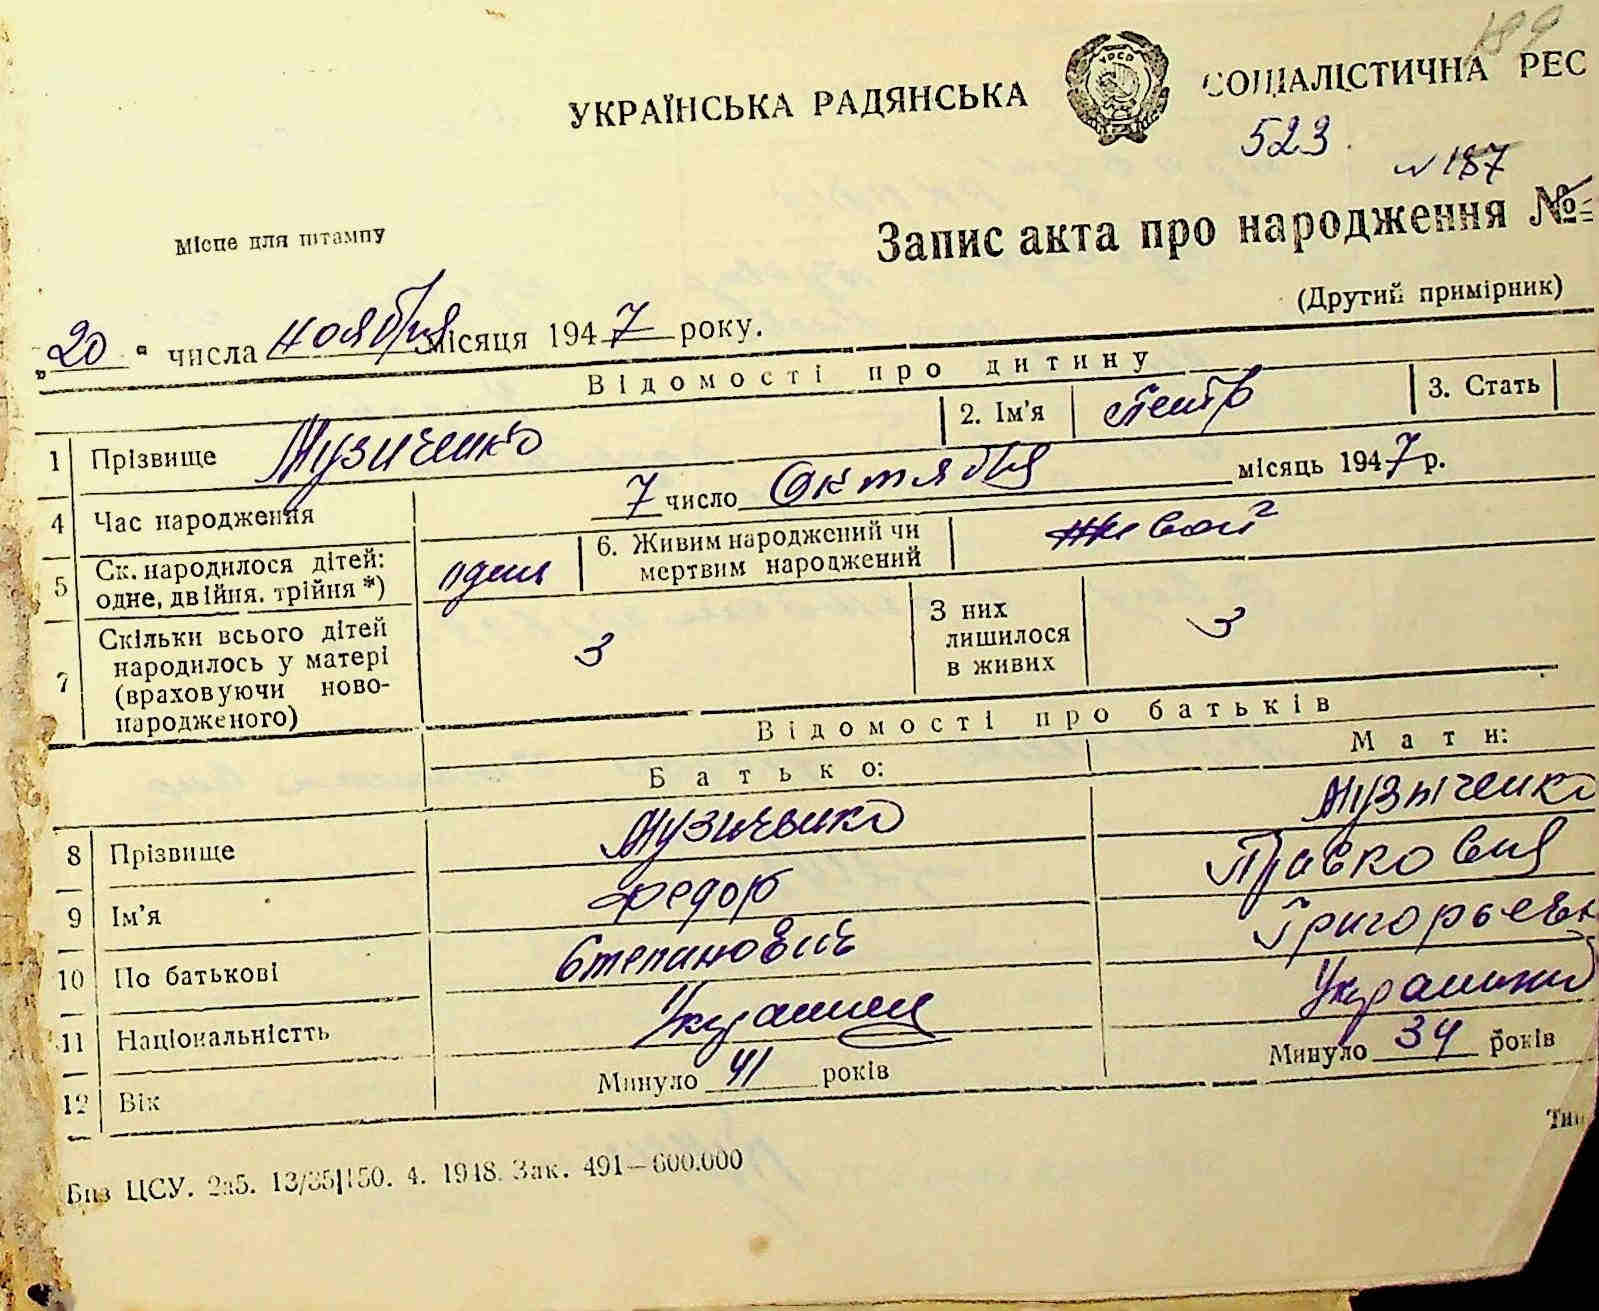 189
УКРАЇНСЬКА РАДЯНСЬКА СОЦІАЛІСТИЧНА РЕС
УРСР
523.
187
Місце для штампу
Запис акта про народження №
(Другий примірник)
„20" числа ноября місяця 1947 року.
Відомості про дитину
1 Прізвище Музиченко 2. Ім'я Петр 3. Стать
4 Час народження 7 число Октября місяць 1947 р.
5 Ск. народилося дітей: одне, двійня, трійня *) один 6. Живим народжений чи мертвим народжений живой
7 Скільки всього дітей народилось у матері (враховуючи ново-народженого) 3 З них лишилося в живих 3
Відомості про батьків
Батько: Мати:
8 Прізвище Музиченко Музыченко
9 Ім'я Федор Прасковия
10 По батькові Степанович Григорьев
11 Національністть Украинец Украинк
12 Вік Минуло 41 років Минуло 34 років
Тип
Бпз ЦСУ. 2а5. 13/35|150. 4. 1948. Зак. 491—600.000